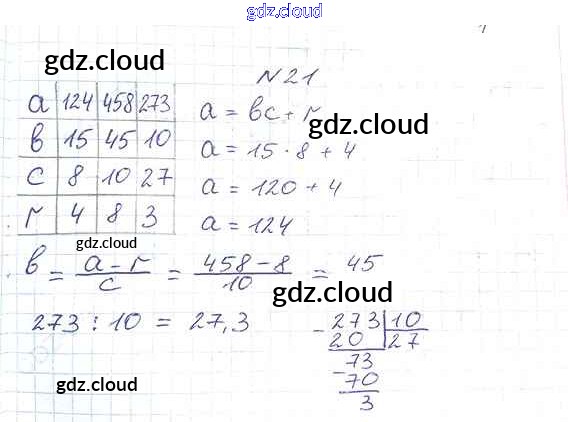 gdz.cloud
gdz.cloud
N 21
a 124 458 273
a = bc + r
gdz.cloud
b 15 45 10
a = 15 · 8 + 4
c 8 10 27
a = 120 + 4
r 4 8 3
a = 124
gdz.cloud
b = a - r / c = 458 - 8 / 10 = 45
gdz.cloud
273 : 10 = 27,3
273 | 10
- 20 27
73
- 70
3
gdz.cloud